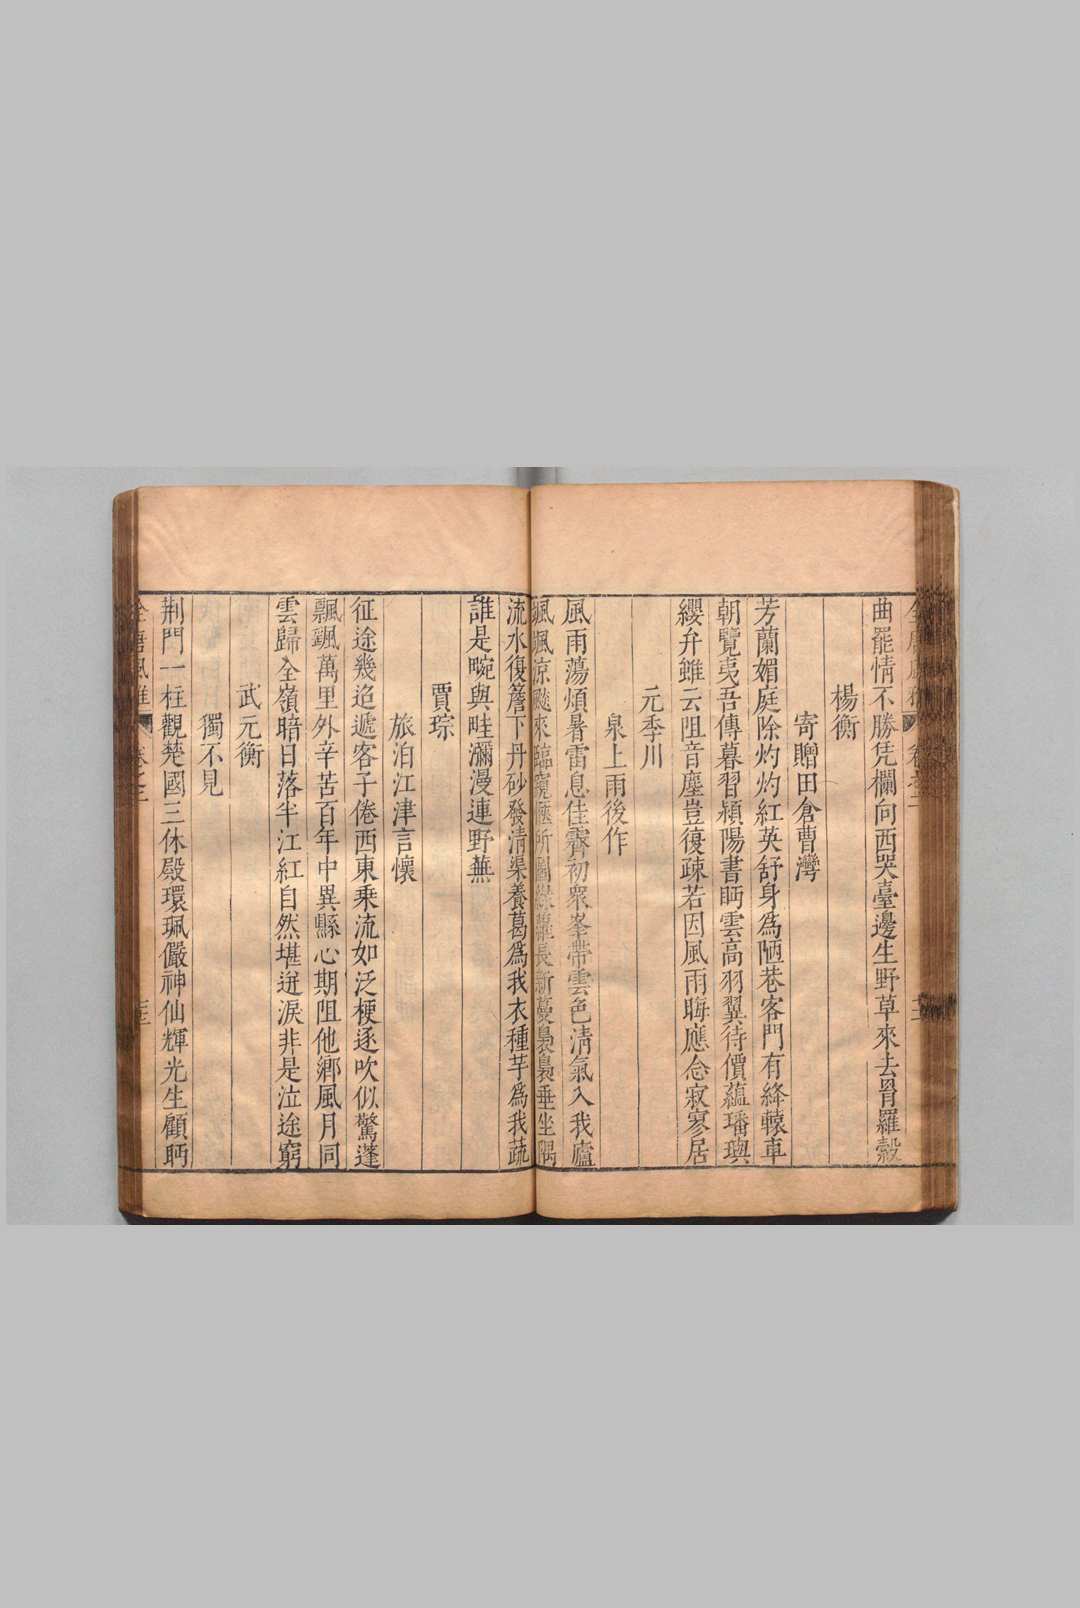 曲罷情不勝凭欄向西哭臺邊生野草來去罥羅縠
楊衡
寄贈田倉曹灣
芳蘭媚庭除灼灼紅英舒身為陋巷客門有絳轅車
朝覽夷吾傳暮習潁陽書眄雲高羽翼待價藴璠璵
纓弁雖云阻音塵豈復疎若因風雨晦應念寂寥居
元季川
泉上雨後作
風雨蕩煩暑雷息佳霽初衆峯帶雲色清氣入我廬
颯颯涼飈來臨窺愜所圖緑蘿長新蔓裊裊垂坐隅
流水復簷下丹砂發清渠養葛為我衣種芋為我蔬
誰是畹與畦瀰漫連野蕪
賈琮
旅泊江津言懷
征途幾迢遞客子倦西東乘流如泛梗逐吹似驚蓬
飄颻萬里外辛苦百年中異縣心期阻他鄉風月同
雲歸全嶺暗日落半江紅自然堪迸淚非是泣途窮
武元衡
獨不見
荆門一柱觀楚國三休殿環珮儼神仙輝光生顧眄
全唐風雅 卷之二